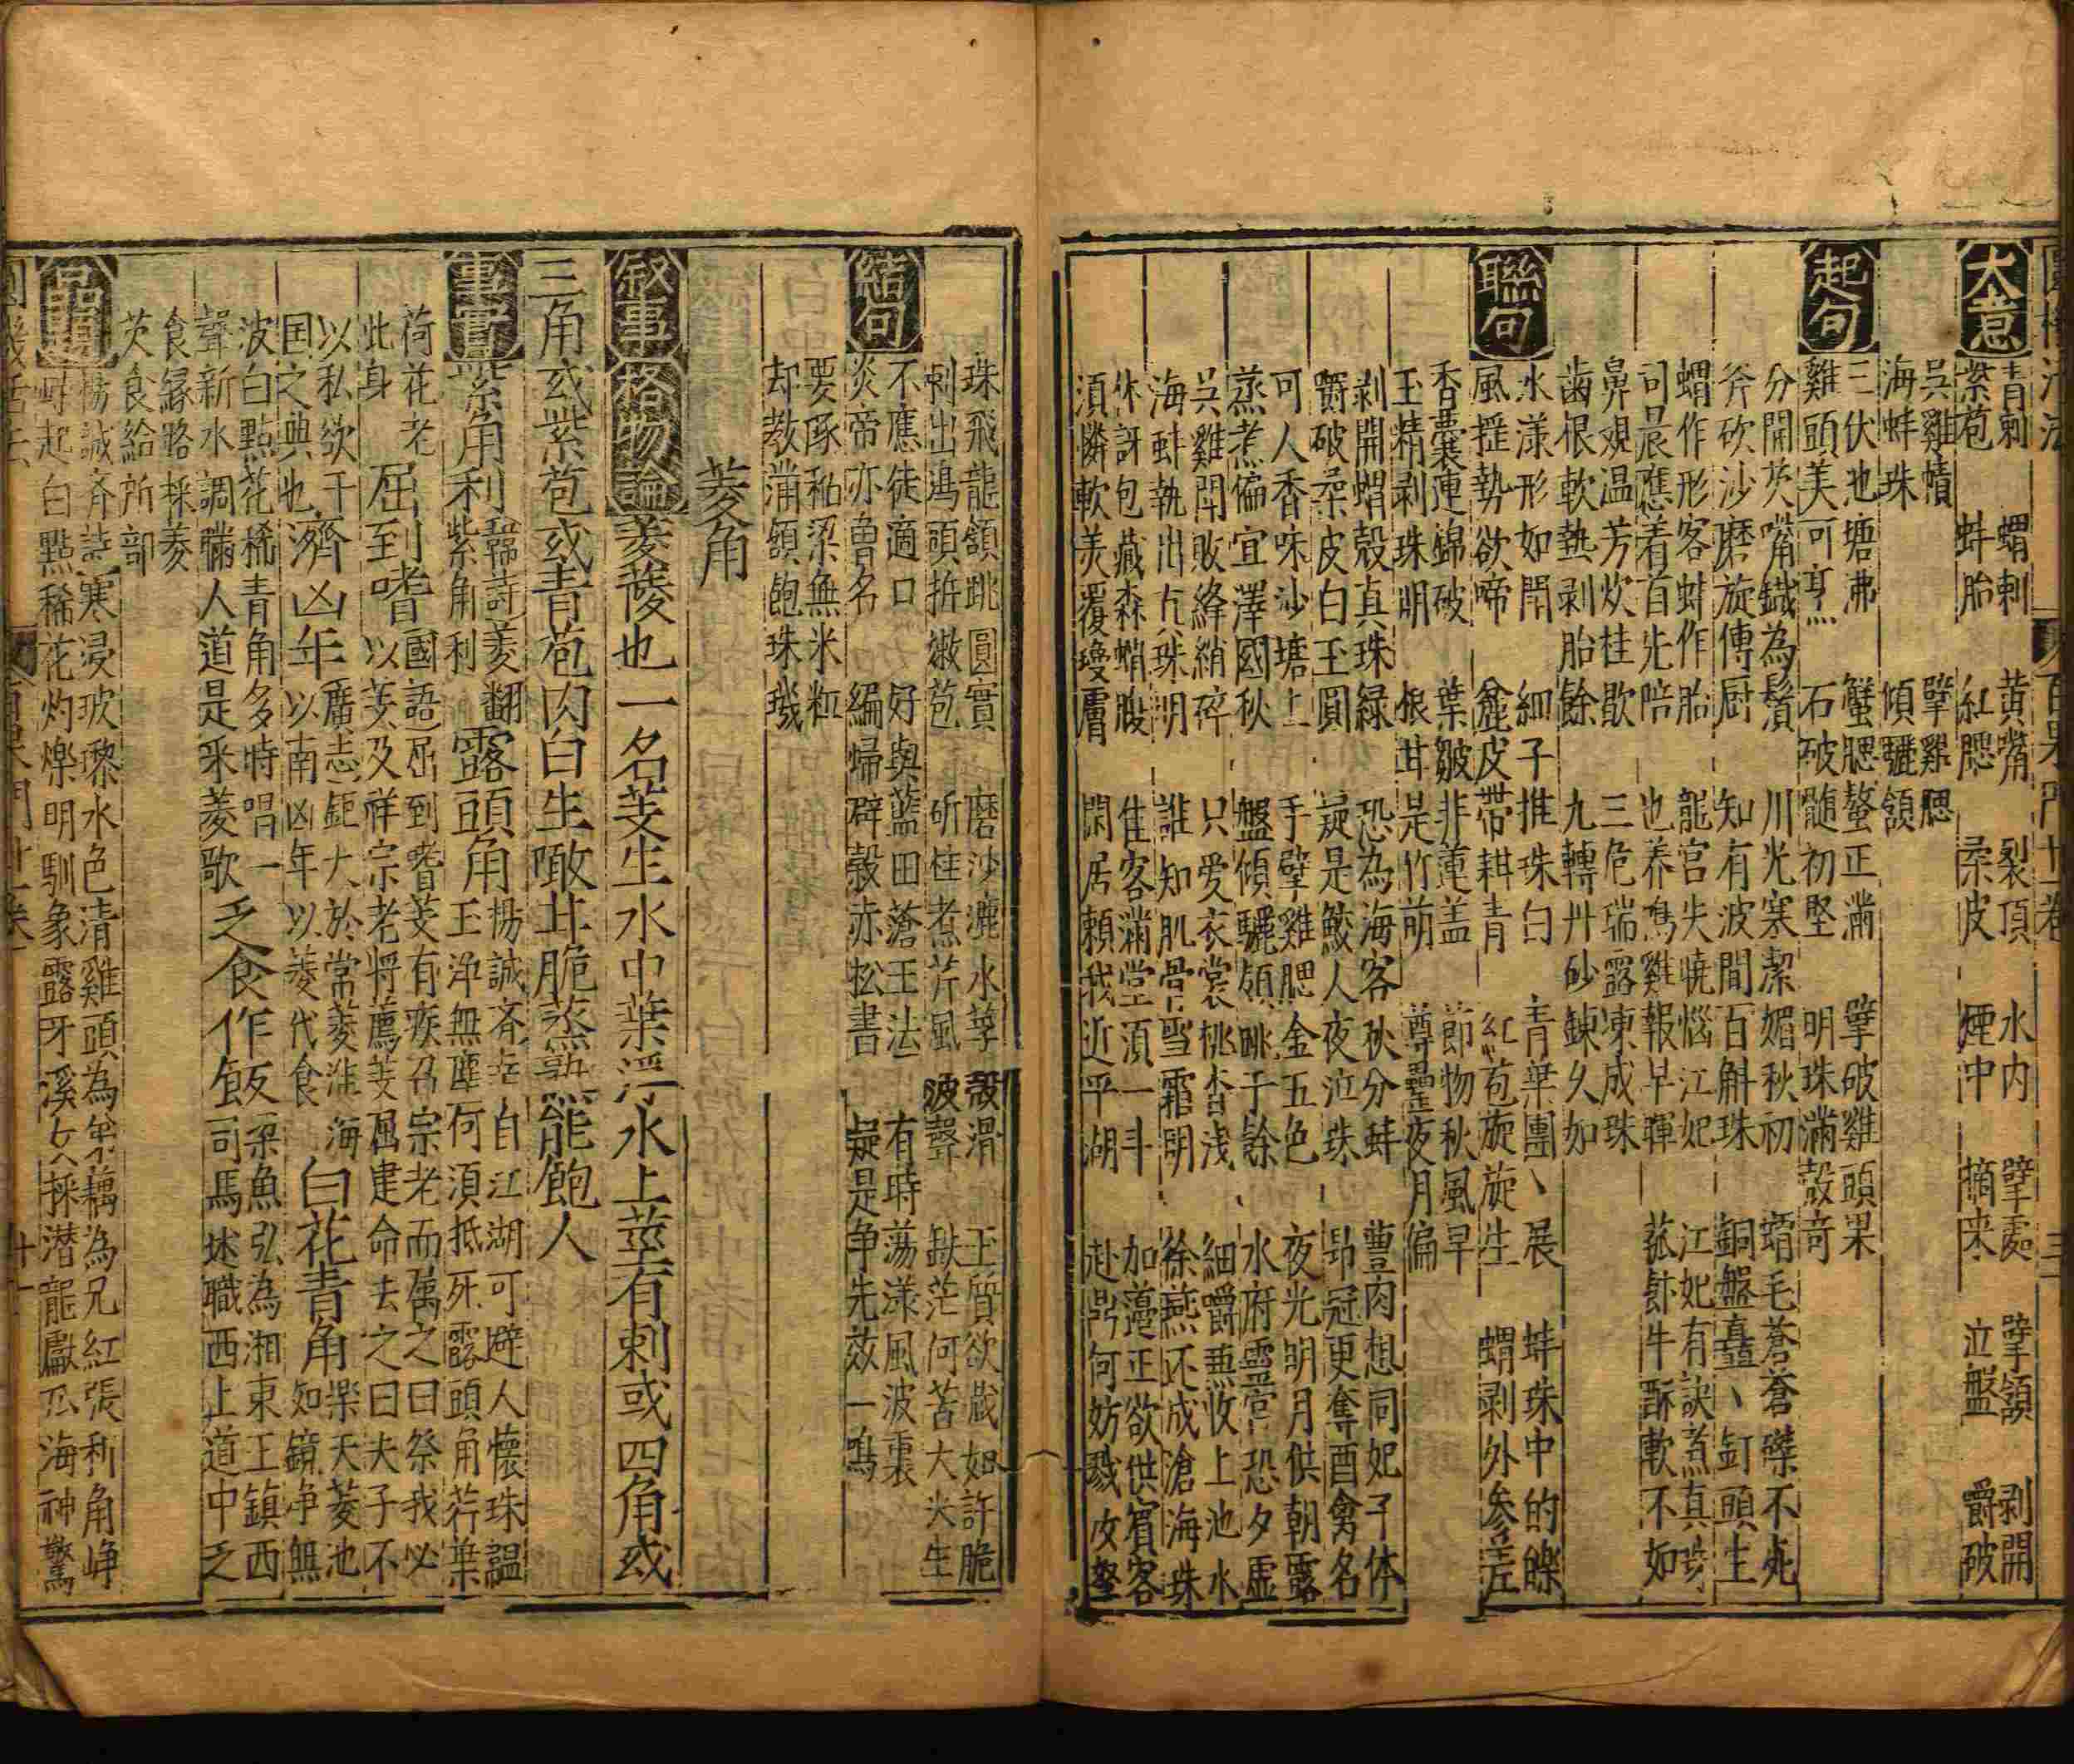 大意 青刺 蝟刺 黄嘴 裂頂 水内 擘處 擘頷 剥開
紫苞 蚌胎 紅腮 柔皮 煙中 摘来 泣盤 嚼破
吳雞幘 擘雞腮
海蚌珠 傾驪頷
起句 三伏池塘沸 蟹腮螯正滿 擘破雞頭果
雞頭美可烹 石破髄初堅 明珠滿殼竒
分開芡嘴鐡為鬚 川光寒潔媚秋初 蝟毛蒼蒼磔不死
斧砍沙磨旋傳厨 知有波間百斛珠 銅盤矗丶釘頭生
蝟作形客蚌作胎 龍宫失曉惱江妃 江妃有訣煮真珠
司晨應着首先陪 也养鳬雞報早暉 菰飰牛酥軟不如
鼻觀温芳炊桂歇 三危瑞露凍成珠
齒根軟熱剥胎餘 九轉丹砂鍊久如
聯句 水漾形如閗 細子推珠白 青葉團丶展 蚌珠中的皪
風擡勢欲啼 麄皮帶耕青 紅苞旋旋生 蝟剥外参差
香囊連錦破 葉皺非蓮盖 節物秋風早
玉精剥珠明 根茸是竹萠 尊罍夜月偏
剥開蝟殼真珠緑 恐為海客秋分蚌 豊肉想同妃子体
嚼破柔皮白玉圓 疑是鮫人夜泣珠 昻冠更奪酉禽名
可人香味沙塘上 手擘雞腮金五色 夜光明月供朝露
蒸煮偏宜澤國秋 盤傾驪領眺于餘 水府靈宫恐夕虚
吳雞閗敗絳綃碎 只愛衣裳桃杏浅 細嚼兼收上池水
海蚌執出真珠明 誰知肌骨雪霜明 徐燕还成滄海珠
休訝包藏森蝟股 佳客滿堂湏一斗 加籩正欲供賔客
湏憐軟美覆瓊膚 閑居頼我近平湖 赴閗何妨戮汝孥
珠飛龍頷跳圓實 磨沙漉水莩殼滑 玉質欲蔵如許脆
剌出鴻頭拆嫩苞 斫柱煮芹風波聲 鈇茫何苦大尖生
結句 不應徒適口 好與藍田蒼玉法 有時蕩漾風波裏
炎帝亦魯名 編歸辟糓赤松書 疑是争先效一鳴
要豚秾梁無米粒
却教滿頷飽珠璣
菱角
叙事 格物論 菱蔆也一名芰生水中葉浮水上莖有刺或四角或
三角或紫苞或青苞肉白生噉甘脆蒸熟能飽人
事實 紫角利 韓詩菱翻紫角利 露頭角 楊誠斎 自江湖可避人懷珠韞玉浄無塵何湏抵死露頭角荇葉
荷花老此身 屈到嗜 國語屈到嗜芰有疾召宗老而属之曰祭我必以芰及祥宗老将薦芰屈建命去之曰夫子不
以私欲干国之典也 濟凶年 廣志鉅大於常菱淮海以南凶年以菱代食 白花青角 樂天菱池如鏡净無
波白點花稀青角多時唱一聲新水調謾人道是采菱歌 乏食作飯 梁魚弘為湘東王鎮西司馬述職西上道中乏
食縁路採菱
芡食給所部
品題 楊誠斎詩 寒浸玻瓈水色清雞頭為弟藕為兄紅張利角峥
嶸起白點稀花灼爍明馴象露牙溪女採潜龍獻爪海神驚
百果門廿一卷